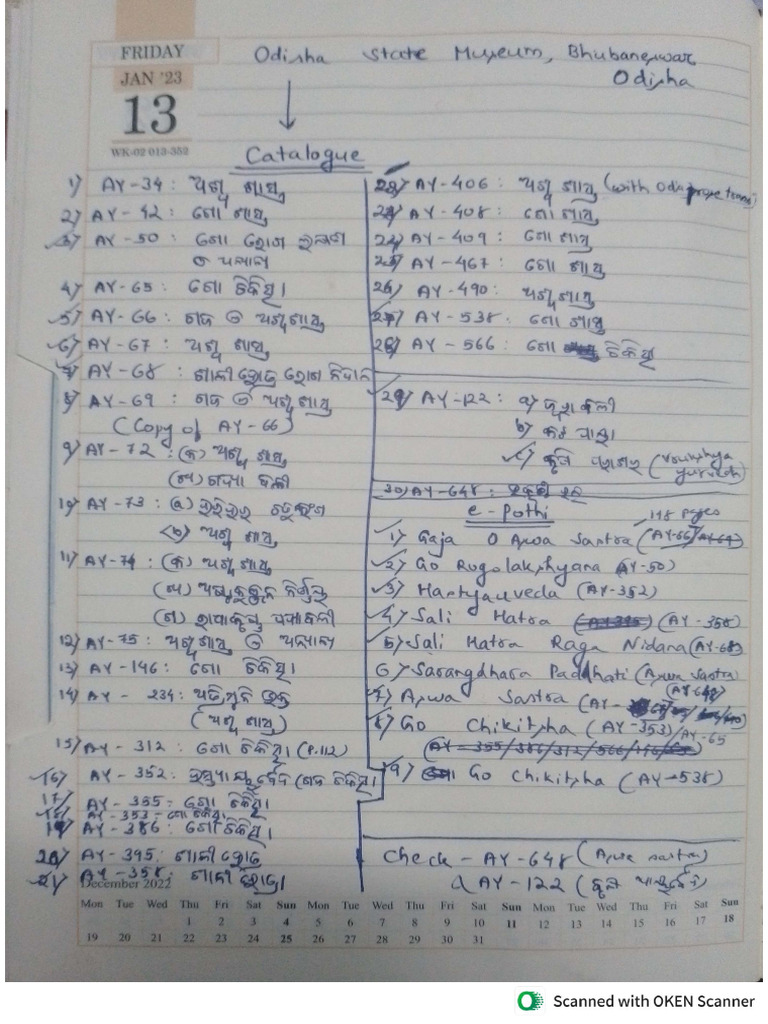 FRIDAY
JAN '23
13
WK-02 013-352
Odisha State Museum, Bhubaneswar
Odisha
Catalogue
1) AY-34 : ଅଶ୍ୱ ଶାସ୍ତ୍ର
2) AY-42 : ଗୋ ଶାସ୍ତ୍ର
3) AY-50 : ଗୋ ରୋଗ ଲକ୍ଷଣ
ଓ ଅନ୍ୟାନ୍ୟ
4) AY-65 : ଗୋ ଚିକିତ୍ସା
5) AY-66 : ଗଜ ଓ ଅଶ୍ୱଶାସ୍ତ୍ର
6) AY-67 : ଅଶ୍ୱ ଶାସ୍ତ୍ର
7) AY-68 : ଶାଳୀ ହୋତ୍ର ରୋଗ ନିଦାନ
8) AY-69 : ଗଜ ଓ ଅଶ୍ୱ ଶାସ୍ତ୍ର
(Copy of AY-66)
9) AY-72 : (କ) ଅଶ୍ୱ ଶାସ୍ତ୍ର
(ଖ)
10) AY-73 : (a)
(b) ଅଶ୍ୱ ଶାସ୍ତ୍ର
11) AY-74 : (କ) ଅଶ୍ୱ ଶାସ୍ତ୍ର
(ଖ)
(ଗ)
12) AY-75 : ଅଶ୍ୱ ଶାସ୍ତ୍ର ଓ ଅନ୍ୟାନ୍ୟ
13) AY-146 : ଗୋ ଚିକିତ୍ସା
14) AY-234 :
(ଅଶ୍ୱ ଶାସ୍ତ୍ର)
15) AY-312 : ଗୋ ଚିକିତ୍ସା (P.112)
16) AY-352 : ହସ୍ତ୍ୟାୟୁର୍ବେଦ (ଗଜ ଚିକିତ୍ସା)
17) AY-355 - ଗୋ ଚିକିତ୍ସା
18) AY-353 - ଗୋ ଚିକିତ୍ସା
19) AY-386 : ଗୋ ଚିକିତ୍ସା
20) AY-395 : ଶାଳୀ ହୋତ୍ର
21) AY-358 : ଶାଳୀ ହୋତ୍ର
22) AY-406 : ଅଶ୍ୱ ଶାସ୍ତ୍ର (with Odia prose trans)
23) AY-408 : ଗୋ ଶାସ୍ତ୍ର
24) AY-409 : ଗୋ ଶାସ୍ତ୍ର
25) AY-467 : ଗୋ ଶାସ୍ତ୍ର
26) AY-490 : ଅଶ୍ୱ ଶାସ୍ତ୍ର
27) AY-538 : ଗୋ ଶାସ୍ତ୍ର
28) AY-566 : ଗୋ ଚିକିତ୍ସା
29) AY-122 : a)
b)
c) କୃଷି ପରାଶର
30) AY-648 :
e-Pothi
118 pages
1) Gaja O Aswa Sastra (AY-66)
2) Go Rogalakshyana (AY-50)
3) Hastyaurveda (AY-352)
4) Sali Hatra (AY-358)
5) Sali Hatra Raga Nidana (AY-68)
6) Sarangdhara Paddhati (Aswa Sastra)
(AY-648)
7) Aswa Sastra (AY-
8) Go Chikitsha (AY-353)/AY-65
(AY-355/386/312/566/146/65)
9) Go Chikitsha (AY-538)
Check - AY-648 (Aswa sastra)
AY-122
December 2022
Mon Tue Wed Thu Fri Sat Sun Mon Tue Wed Thu Fri Sat Sun Mon Tue Wed Thu Fri Sat Sun
1 2 3 4 5 6 7 8 9 10 11 12 13 14 15 16 17 18
19 20 21 22 23 24 25 26 27 28 29 30 31
Scanned with OKEN Scanner